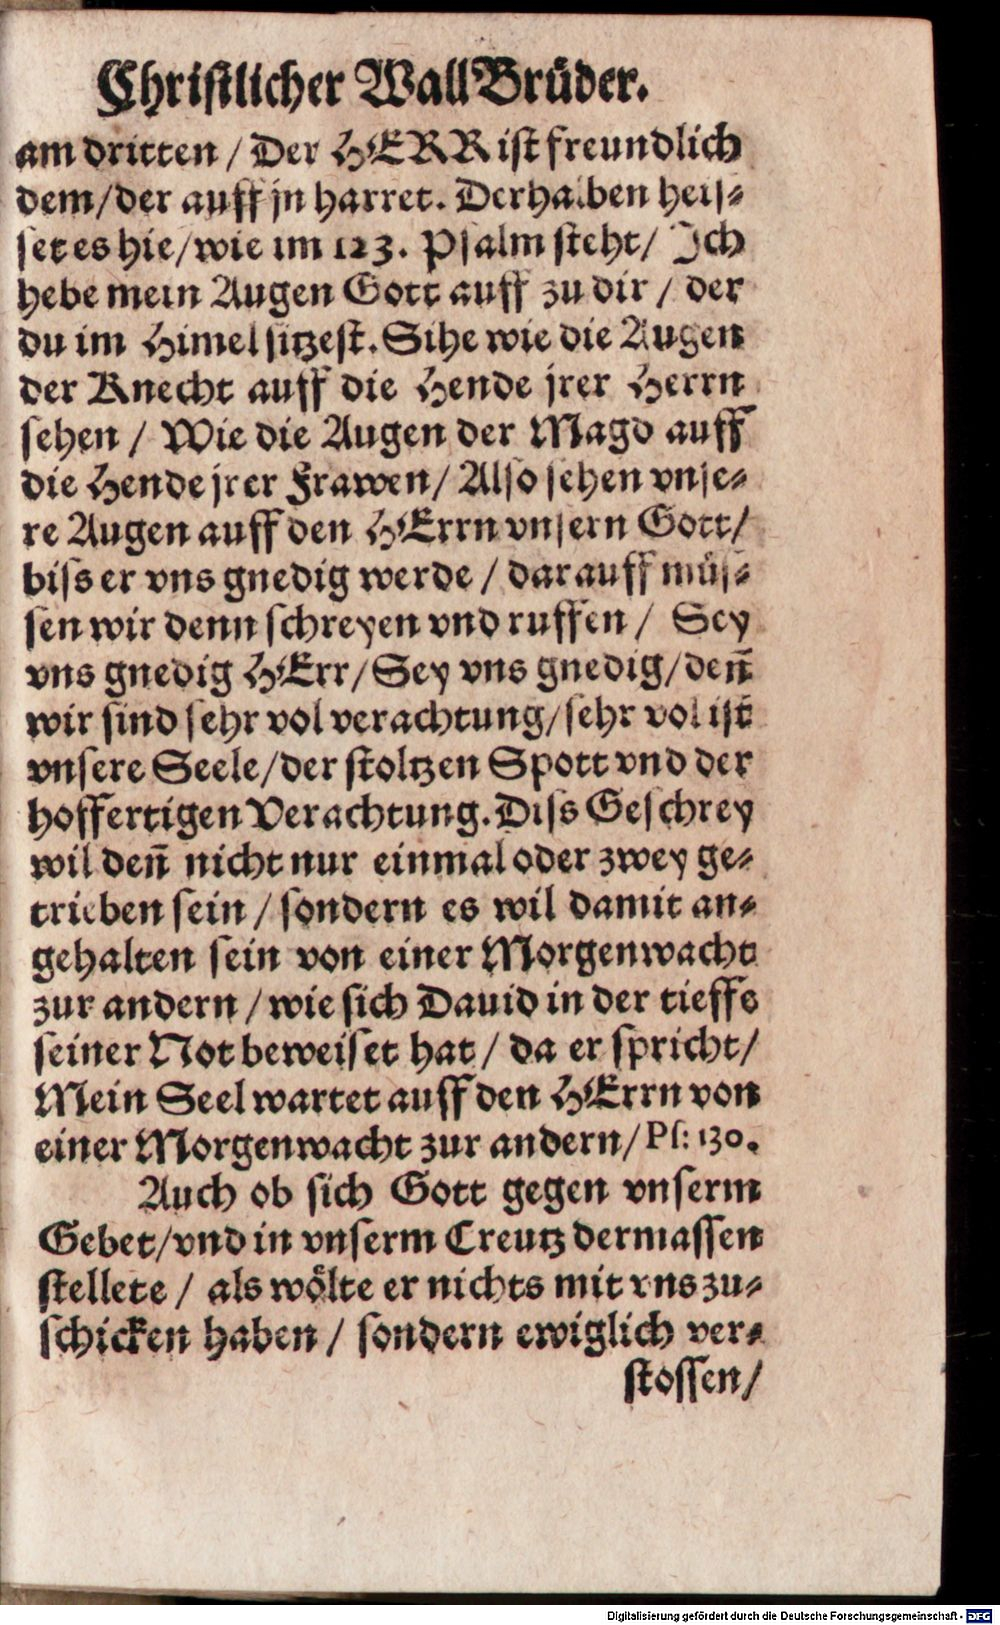 Christlicher Wall Brüder.
am dritten / Der HERR ist freundlich
dem / der auff jn harret. Derhalben heis-
set es hie / wie im 123. Psalm steht / Ich
hebe mein Augen Gott auff zu dir / der
du im Himel sitzest. Sihe wie die Augen
der Knecht auff die Hende jrer Herrn
sehen / Wie die Augen der Magd auff
die Hende jrer Frawen / Also sehen vnse-
re Augen auff den HErrn vnsern Gott /
biss er vns gnedig werde / darauff müs-
sen wir denn schreyen vnd ruffen / Sey
vns gnedig HErr / Sey vns gnedig / deñ
wir sind sehr vol verachtung / sehr vol ist
vnsere Seele / der stoltzen Spott vnd der
hoffertigen Verachtung. Diss Geschrey
wil deñ nicht nur einmal oder zwey ge-
trieben sein / sondern es wil damit an-
gehalten sein von einer Morgenwacht
zur andern / wie sich Dauid in der tieffe
seiner Not beweiset hat / da er spricht /
Mein Seel wartet auff den HErrn von
einer Morgenwacht zur andern / Ps: 130.
Auch ob sich Gott gegen vnserm
Gebet / vnd in vnserm Creutz dermassen
stellete / als wölte er nichts mit vns zu-
schicken haben / sondern ewiglich ver-
stossen /
Digitalisierung gefördert durch die Deutsche Forschungsgemeinschaft - DFG